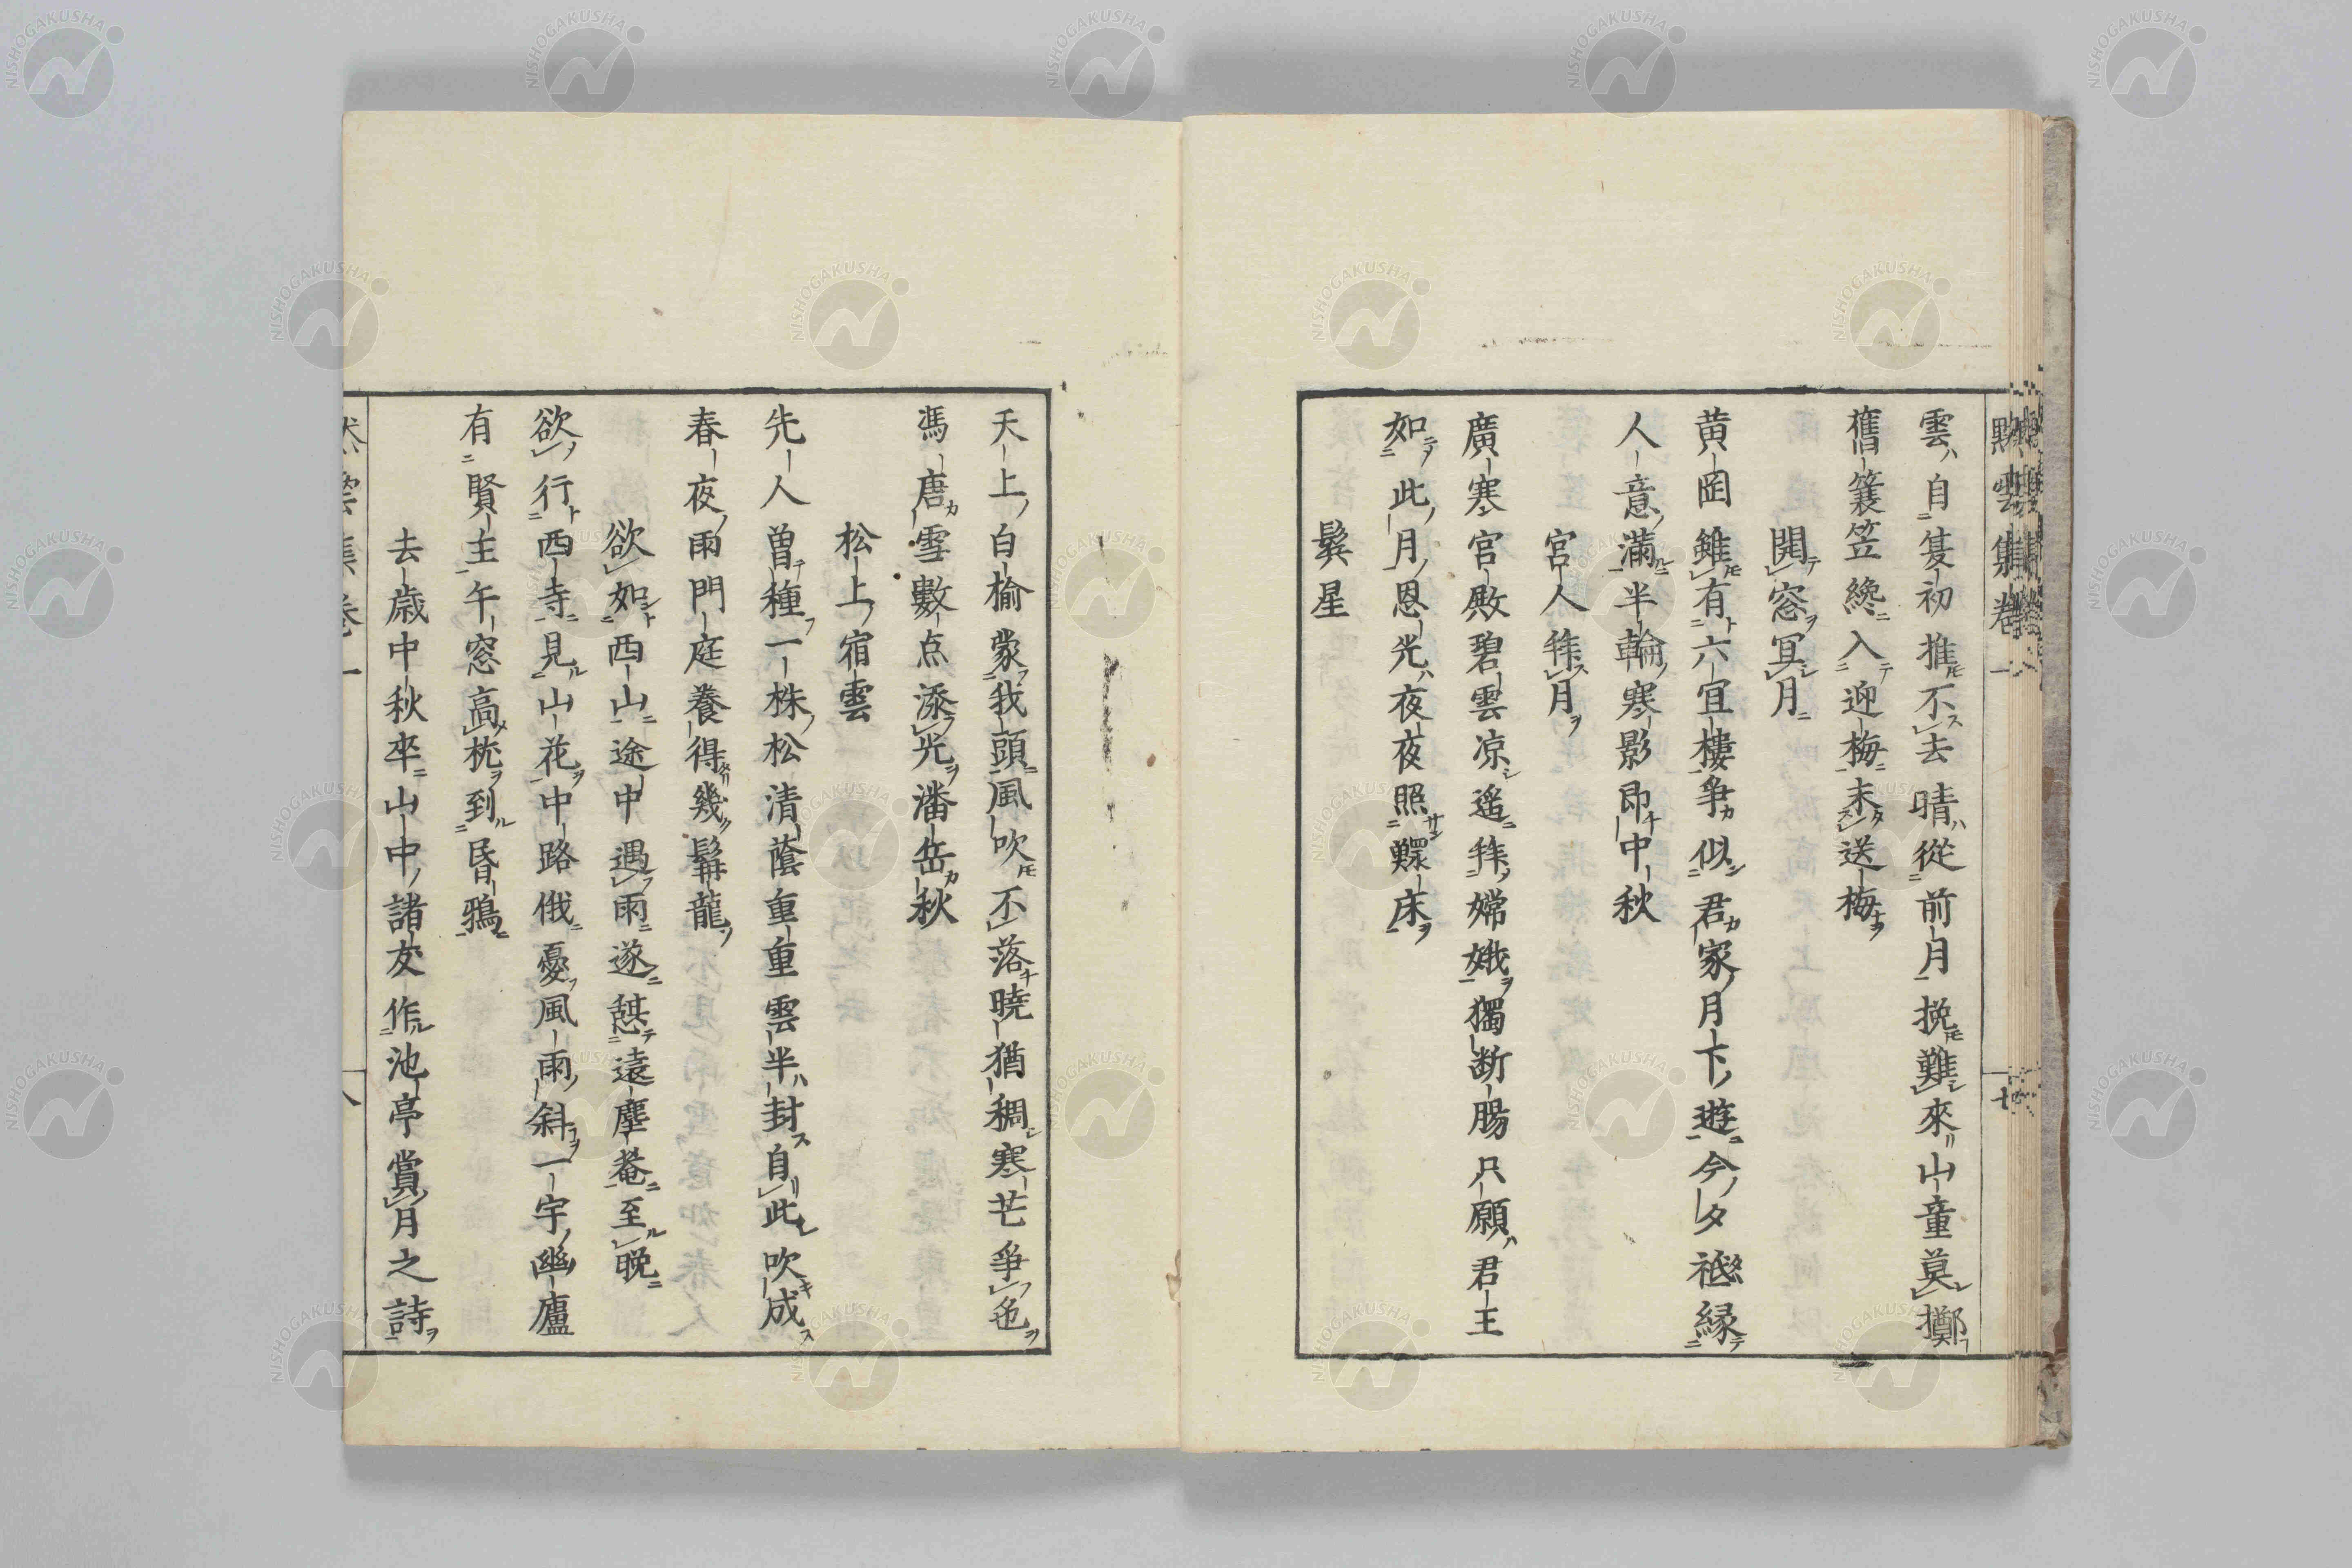 雲自隻初推不去晴從前月挽難來山童莫擲
舊簑笠纔入迎梅未送梅
開窓冥月
黄岡雖有六宜樓爭似君家月下遊今夕祗縁
人意滿半輪寒影即中秋
宮人拜月
廣寒宮殿碧雲凉遥拜嫦娥獨断腸只願君王
如此月恩光夜夜照床
鬂星
天上白楡蒙我頭風吹不落曉猶稠寒芒爭色
馮唐雪數点添光潘岳秋
松上宿雲
先人曽種一株松清蔭重重雲半封自此吹成
春夜雨門庭養得幾髯龍
欲如西山途中遇雨遂憇遠塵菴至晩
欲行西寺見山花中路俄憂風雨斜一宇幽廬
有賢主午窓高枕到昏鴉
去歳中秋卒山中諸友作池亭賞月之詩
雲集卷一
八
黙雲集卷一
七
NISHOGAKUSHA